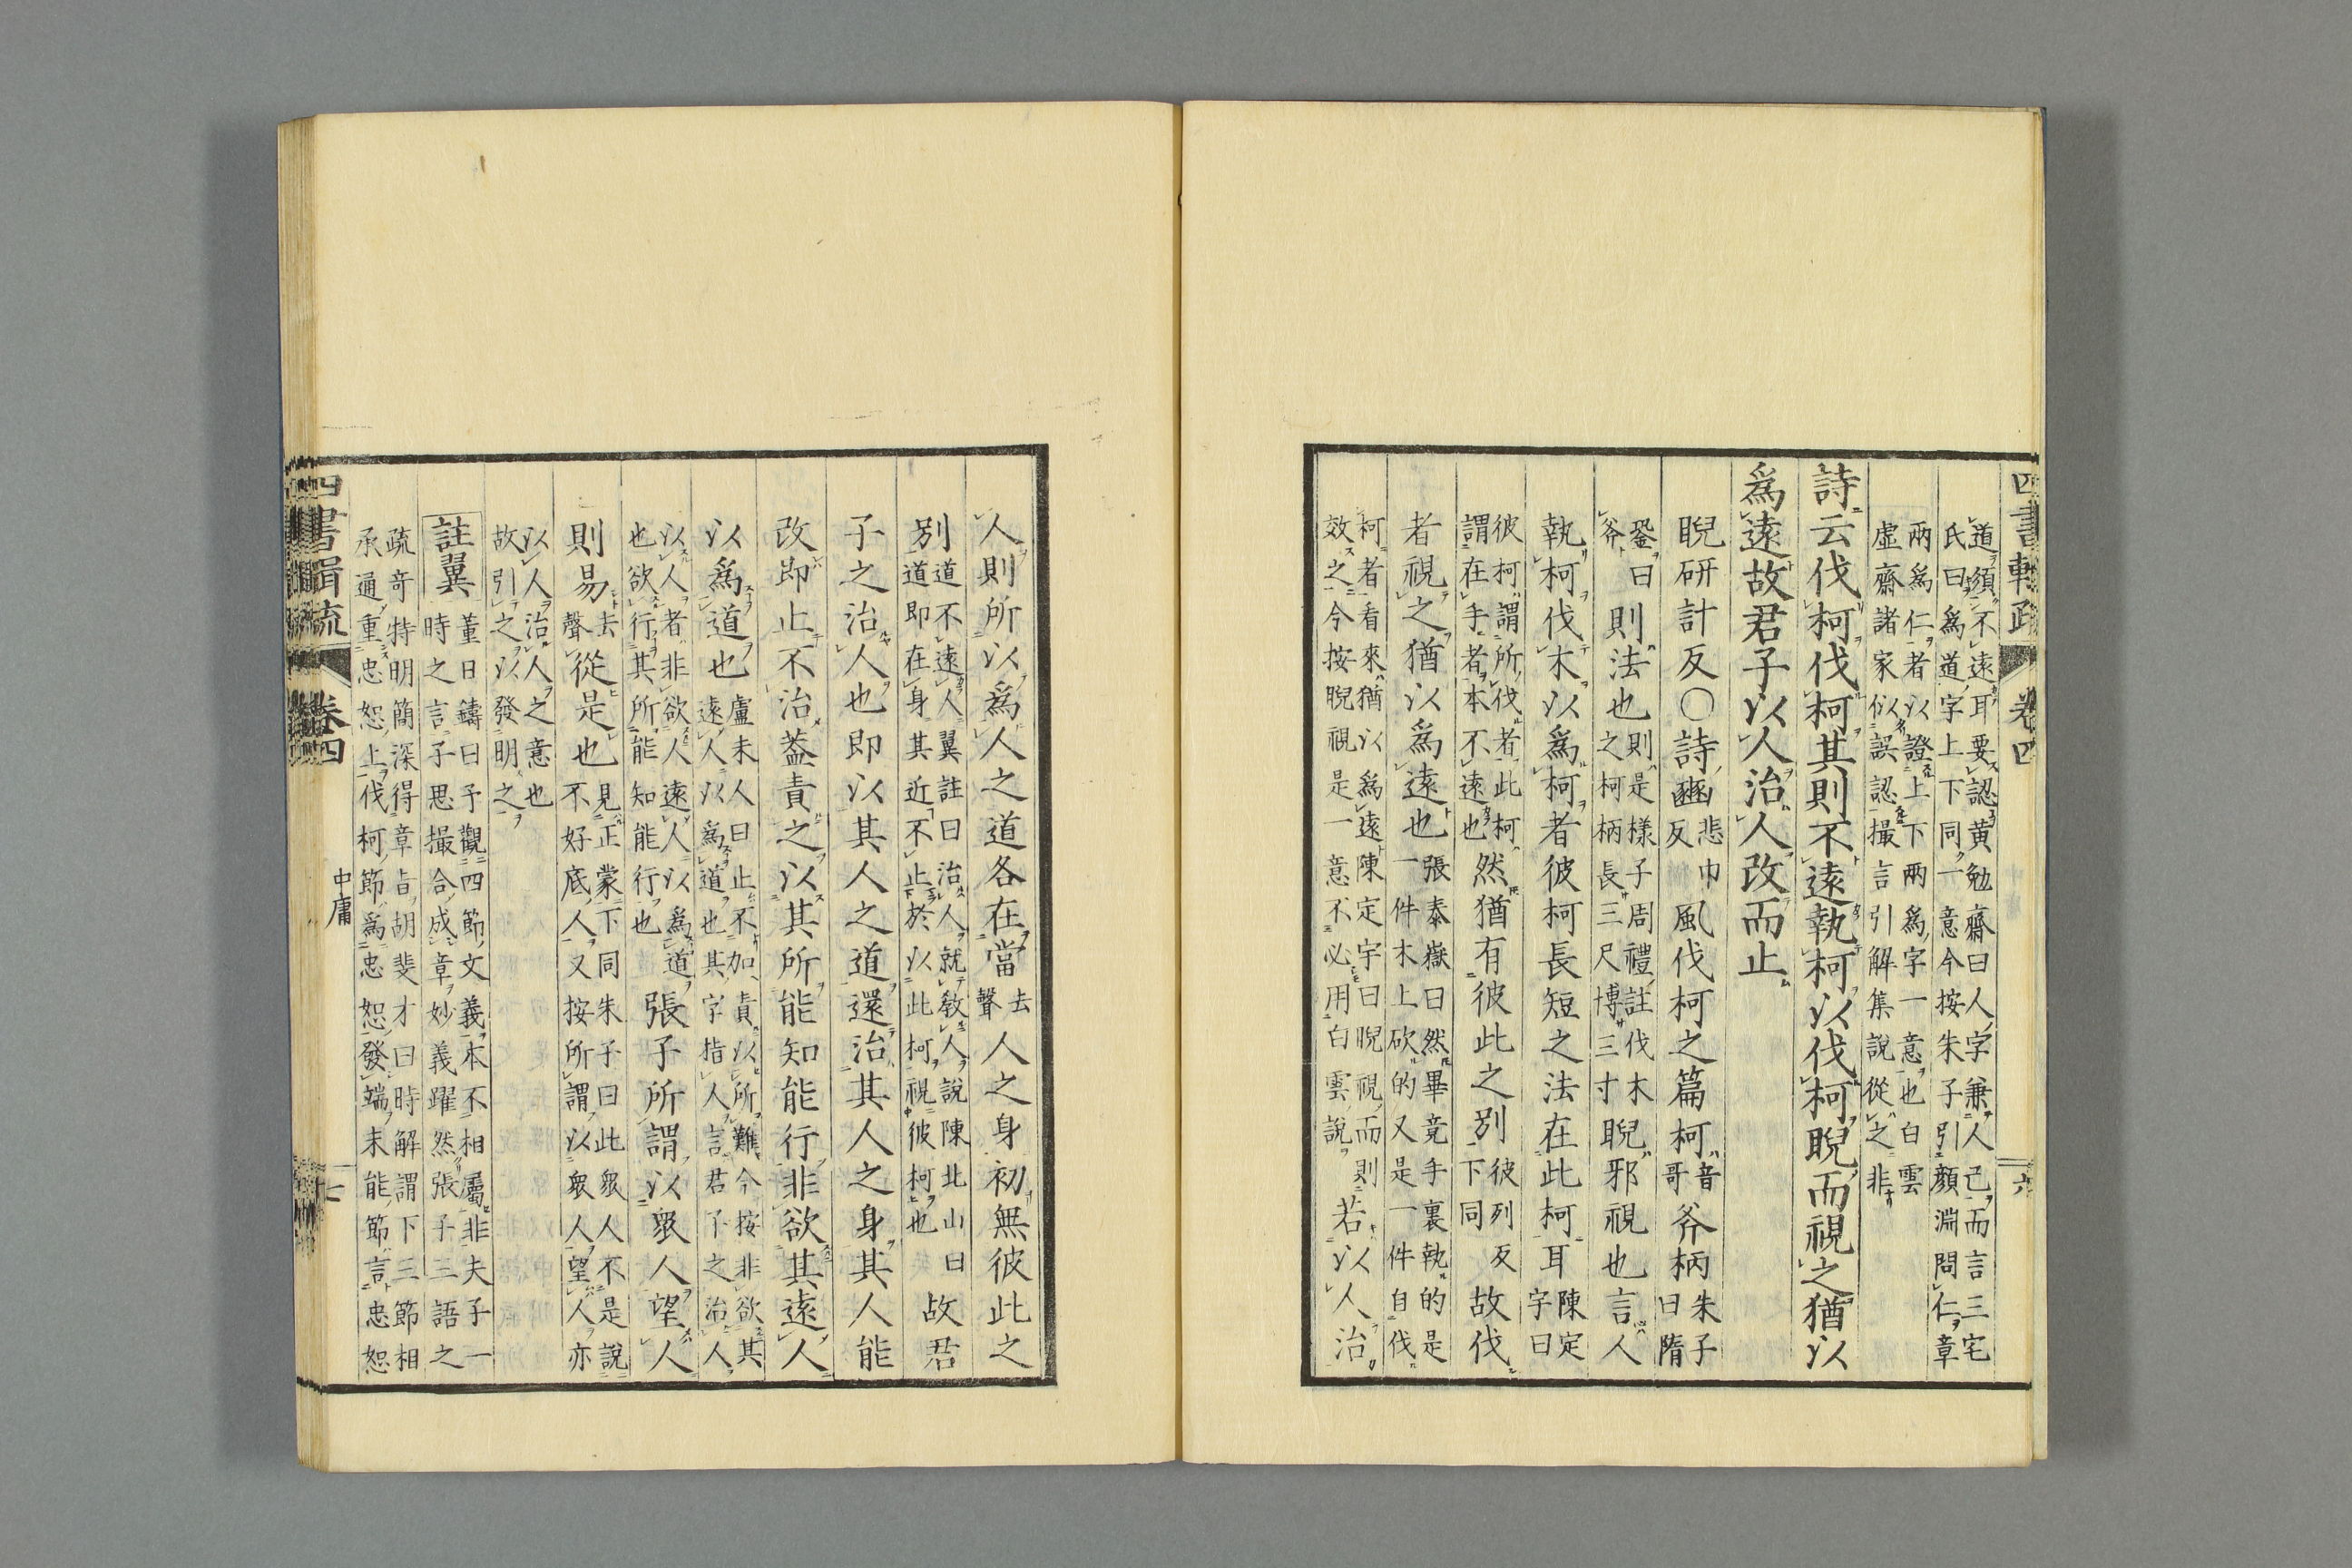 四書輯疏
卷四
六
道須不遠耳要認黃勉齋曰人字兼人己而言三宅
氏曰爲道字上下同一意今按朱子引顏淵問仁章
兩爲仁者以證上下兩爲字一意也白雲
虛齋諸家似誤認撮言引解集說從之非
詩云伐柯伐柯其則不遠執柯以伐柯睨而視之猶以
爲遠故君子以人治人改而止
睨研計反〇詩豳悲巾反風伐柯之篇柯音哥斧柄朱子曰隋
銎曰斧則法也則是樣子周禮註伐木之柯柄長三尺博三寸睨邪視也言人
執柯伐木以爲柯者彼柯長短之法在此柯耳陳定字曰
彼柯謂所伐者此柯謂在手者本不遠也然猶有彼此之別彼列反下同故伐
者視之猶以爲遠也張泰嶽曰然畢竟手裏執的是一件木上砍的又是一件自伐
柯者看來猶以爲遠陳定宇曰睨視而則效之今按睨視是一意不必用白雲說若以人治
人則所以爲人之道各在當去聲人之身初無彼此之
別道不遠人翼註曰治人就教人說陳北山曰道即在身其近不止於以此柯視彼柯也故君
子之治人也即以其人之道還治其人之身其人能
改即止不治蓋責之以其所能知能行非欲其遠人
以爲道也盧未人曰止不加責以所難今按非欲其遠人以爲道也其字指人言君子之治人
以人者非欲人遠人以爲道也欲行其所能知能行也張子所謂以眾人望人
則易去聲從是也見正蒙下同朱子曰此眾人不是說不好底人又按所謂以眾人望人亦
以人治人之意也故引之以發明之
註翼董日鑄曰予觀四節文義本不相屬非夫子一時之言子思撮合成章妙義躍然張子三語之
疏奇特明簡深得章旨胡斐才曰時解謂下三節相承通重忠恕上伐柯節爲忠恕發端未能節言忠恕
四書輯疏
卷四
中庸
七